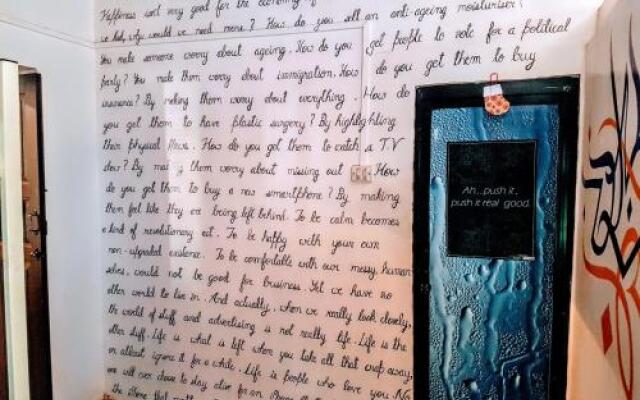 Happiness isn't very good for the economy. If
we had, why would we need more? How do you sell an anti-ageing moisturiser?
You make someone worry about ageing. How do you get people to vote for a political
party? You make them worry about immigration. How do you get them to buy
insurance? By making them worry about everything. How do
you get them to have plastic surgery? By highlighting
their physical flaws. How do you get them to catch a TV
show? By making them worry about missing out. How
do you get them to buy a new smartphone? By making
them feel like they are being left behind. To be calm becomes
a kind of revolutionary act. To be happy with your own
non-upgraded existence. To be comfortable with our messy, human
selves, would not be good for business. Yet we have no
other world to live in. And actually, when we really look closely,
the world of stuff and advertising is not really life. Life is the
other stuff. Life is what is left when you take all that crap away,
or atleast ignore it for a while. Life is people who love you. No
one will ever choose to stay alive for an iPhone.
Ah...push it,
push it real good.